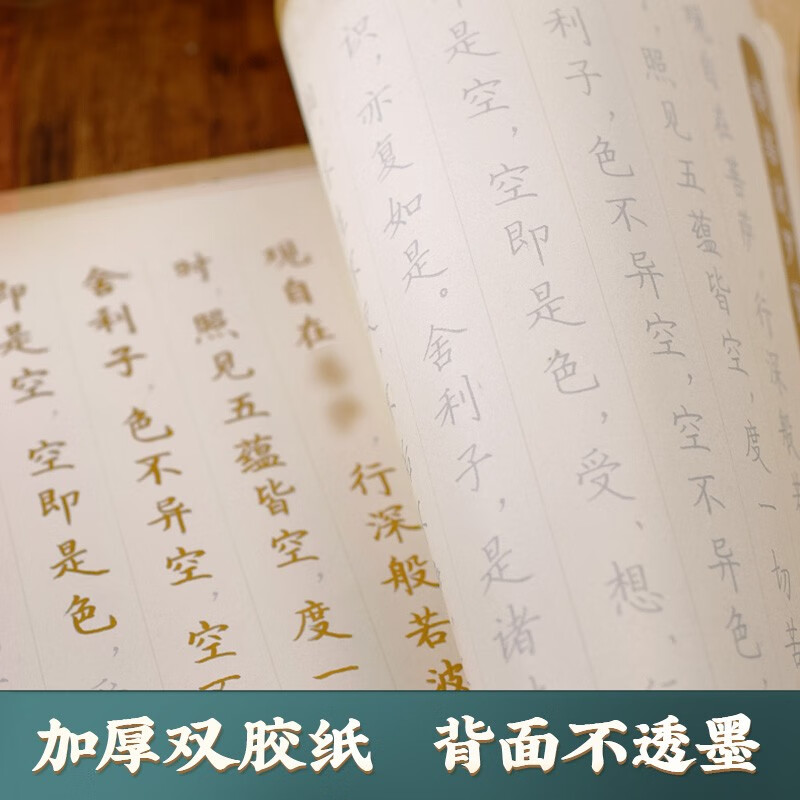 观自在菩萨，行深般若
，照见五蕴皆空，度一切苦
利子，色不异空，空不异色
是空，空即是色，受、想、
识，亦复如是。舍利子，是诸
观自在，行深般若波
时，照见五蕴皆空，度一
舍利子，色不异空，空不
即是空，空即是色，
加厚双胶纸 背面不透墨